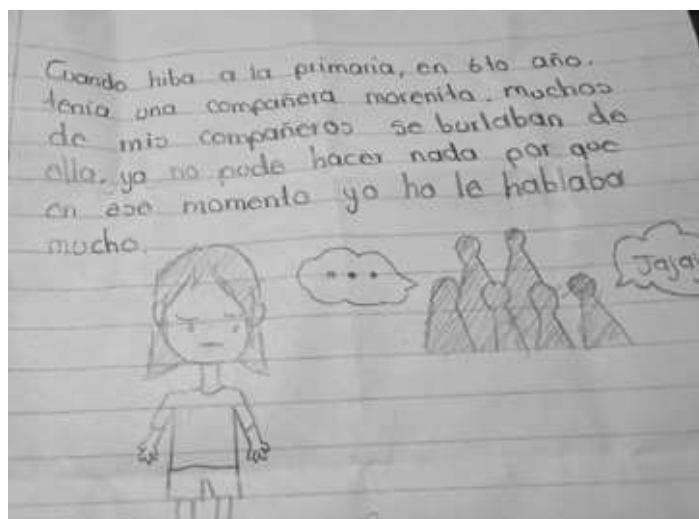 Cuando hiba a la primaria, en 6to año.
tenia una compañera morenita. muchos
de mis compañeros se burlaban de
ella. yo no pude hacer nada por que
en ese momento yo no le hablaba
mucho.
...
Jaja